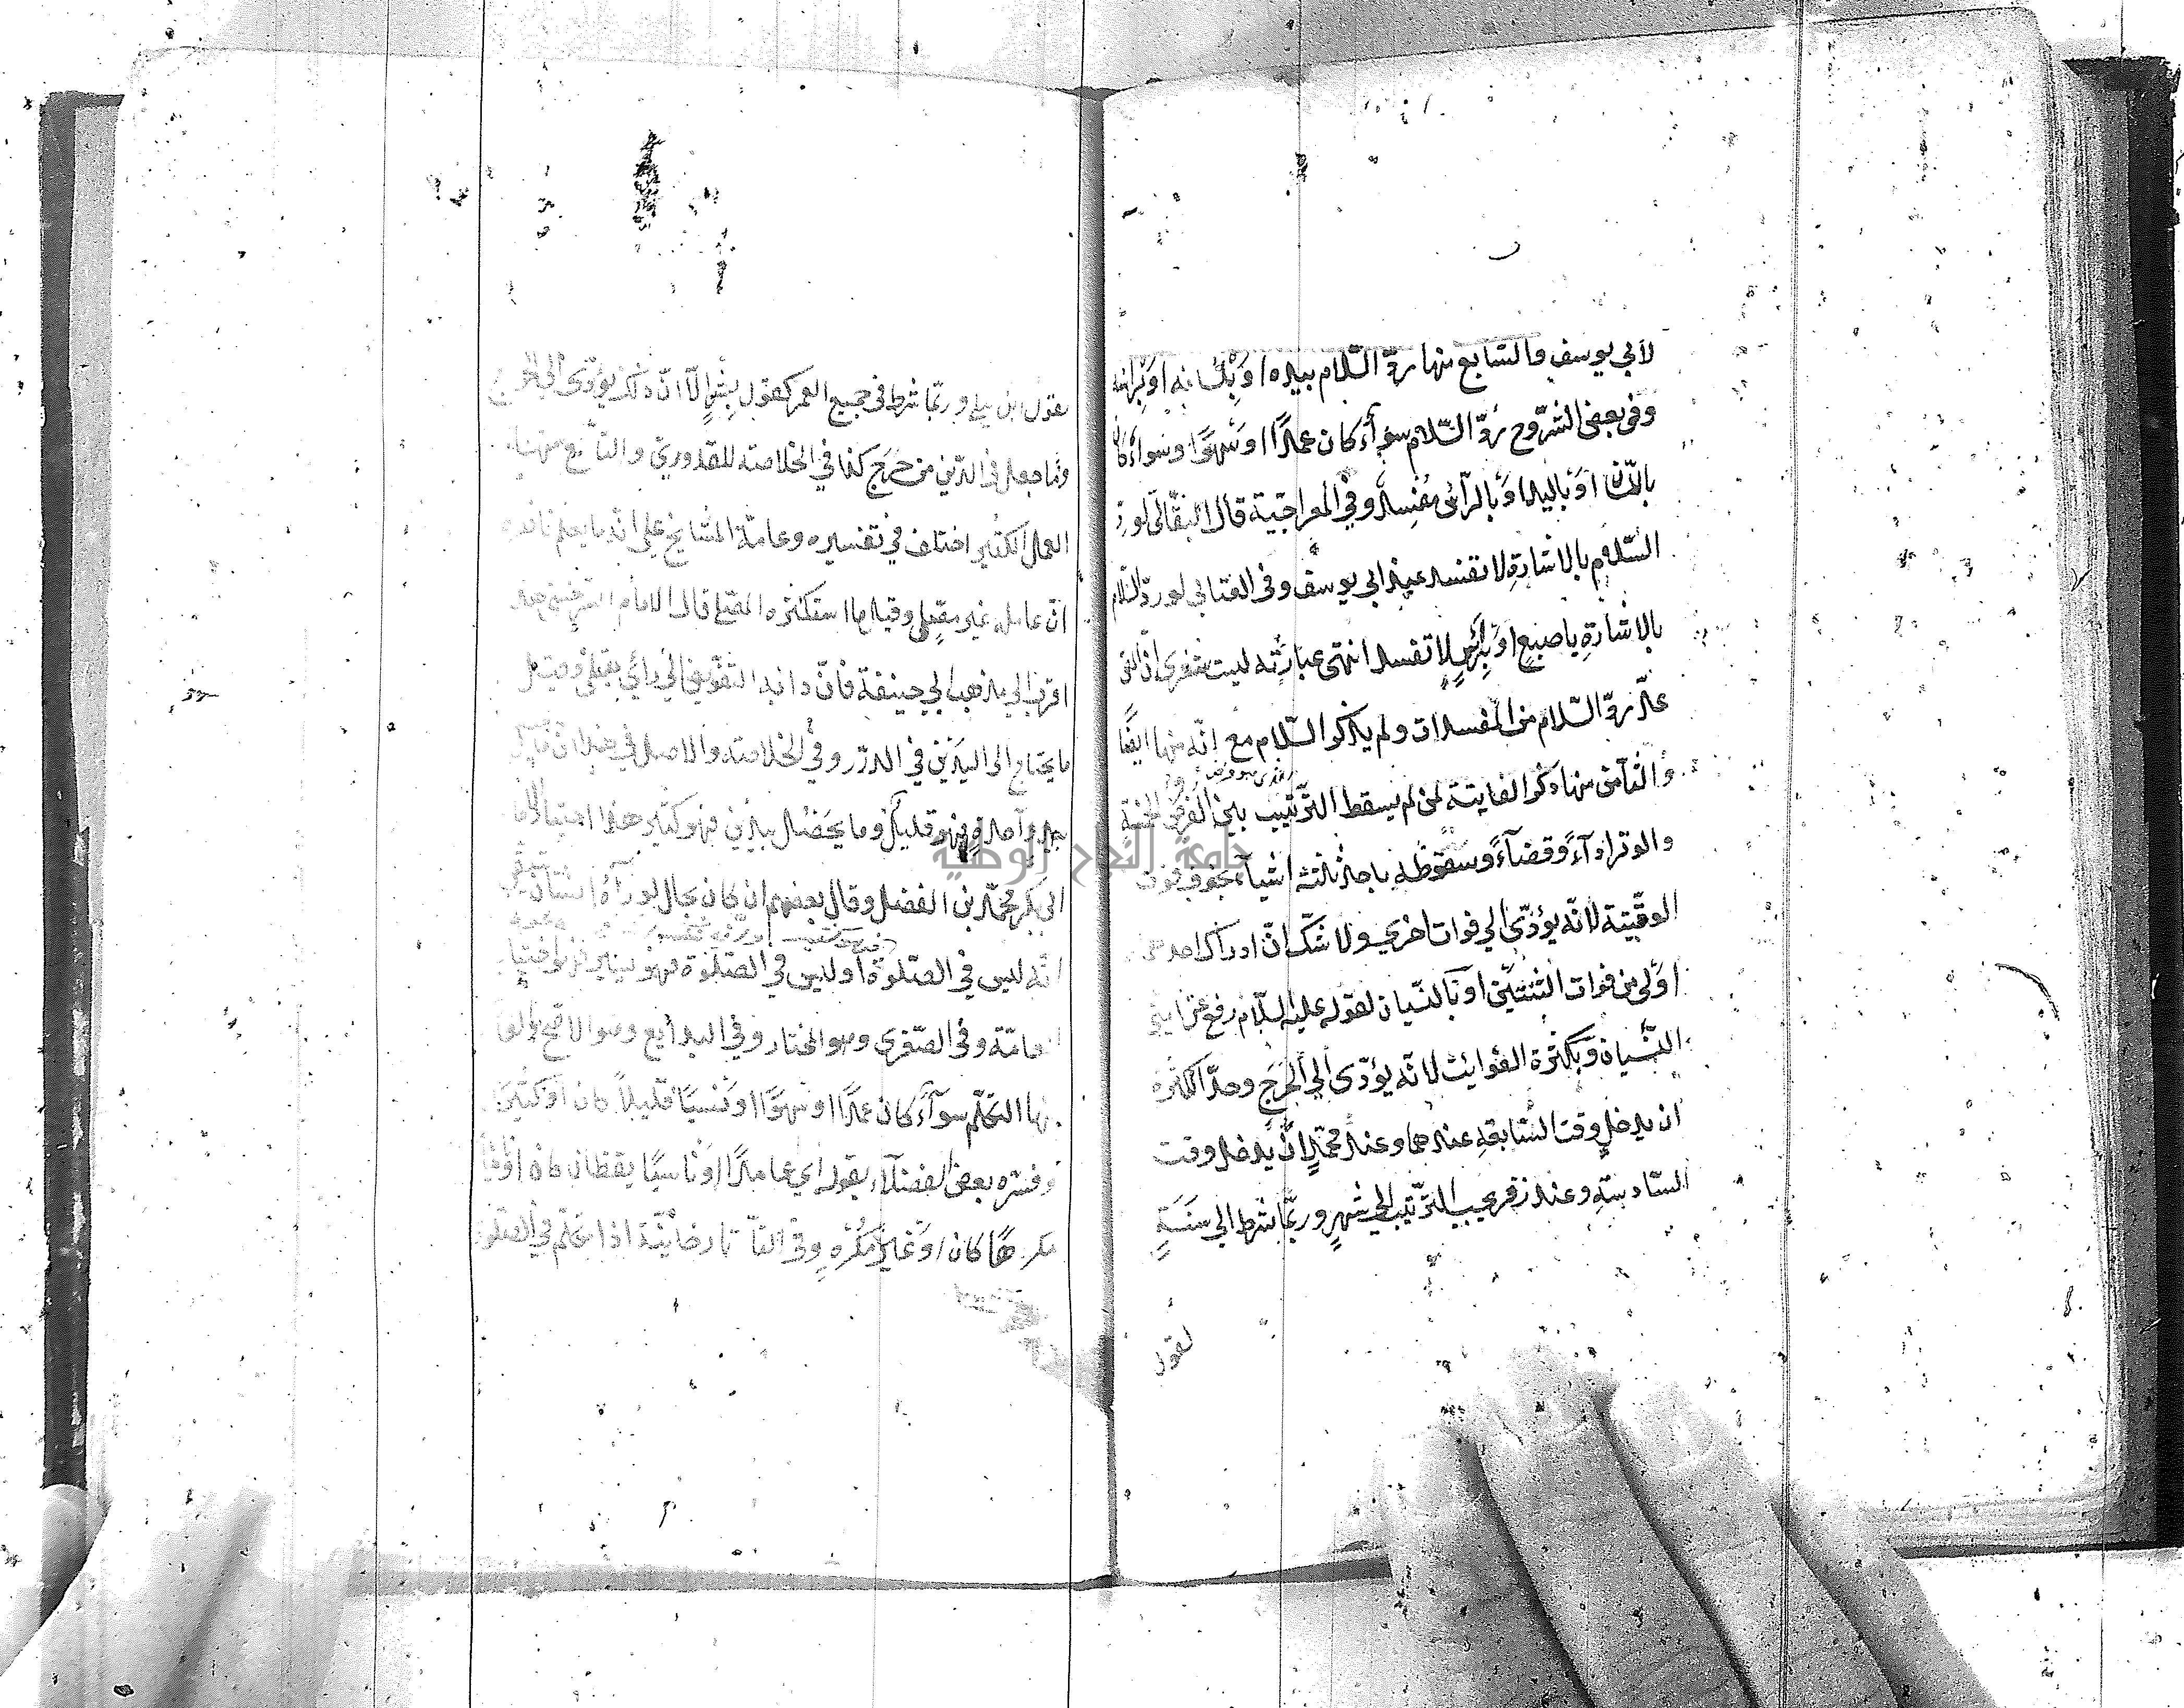 لابي يوسف والسابع منها ردّ السّلام بيده او بلسانه او برأسه
وفي بعض الشروح ردّ السّلام سوآء كان عمدًا او سهوًا وسواء كان
باللسان او باليد او بالرأس مفسد وفي المعراجيّة قال البقّالي لو ردّ
السّلام بالاشارةِ لا تفسد عند ابي يوسف وفي العتابي لو ردّ السّلام
بالاشارةِ باصبعٍ او برأسٍ لا تفسد انتهى عبارته ليت شعري انّ
عدّ ردّ السّلام من المفسدات ولم يذكر السّلام مع انّه منها ايضًا
والثّامن منها ذكر الفايتة لمن لم يسقط الترتيب بين الفرض الخمسة
والوتر ادآءً وقضآءً وسقوطه باحد ثلثة اشيآء بخوف فوت
الوقتيّة لانّه يؤدّي الي فوات اخري ولا شكّ انّ ادراك احديهما
اوْلي من فوات الثنتيّن او بالنّسيان لقوله عليه السّلام رفع عن امتي
النّسيان وبكثرة الفوائت لانّه يؤدّى الي الحرَج وحدّ الكثرة
ان يدخل وقت السّابعة عندهما وعند محمّدٍ ان يدخل وقت
السّادسةِ وعند زفر يجب الترتيب الي شهرٍ وربّما شرط الي سنَةٍ
لقول
بقول ابن ليلي وربّما شرط في جميع العمر كقول بشرٍ الّا انّ ذلك يؤدّى الي الحرج
وما جعل في الدّين من حرَج كذا في الخلاصة للقدوريّ والتاسع منها
العمل الكثير اختلف في تفسيره وعامّة المشايخ على انّه ما يعلم ناظره
انّ عامله غير مصلٍّ وقيل ما استكثره المصلي قال الامام السرخسي هذا
اقرب الي مذهب ابي حنيفة فانّ دأبه التفويض الي رأي المبتلي وقيل
ما يحتاج الى اليدَيْن في الدرر وفي الخلاصة والاصل في هذا انّ ما
بيدٍ واحدةٍ فهو قليل وما يحصُل بيدَين فهو كثير هذا اختيار الامام
ابي بكر محمّد بن الفضل وقال بعضهم ان كان بحال لو رآه انسان
انّه ليس في الصّلوة او ليس في الصّلوة فهو كثير
العامّة وفي الصّغري وهو المختار وفي البدايع وهو الاصح
منها التكلّم سوآءً كان عمدًا او سهوًا او نسيًا قليلاً كان او كثيرًا
وفسّره بعض الفضلآء بقوله اي عامدًا او ناسيًا يقظان كان او نائمًا
مكرهًا كان او غير مكرَهٍ وفي التّاتارخانيّة اذا تكلّم في الصّلوة
جامعة النجاح الوطنية